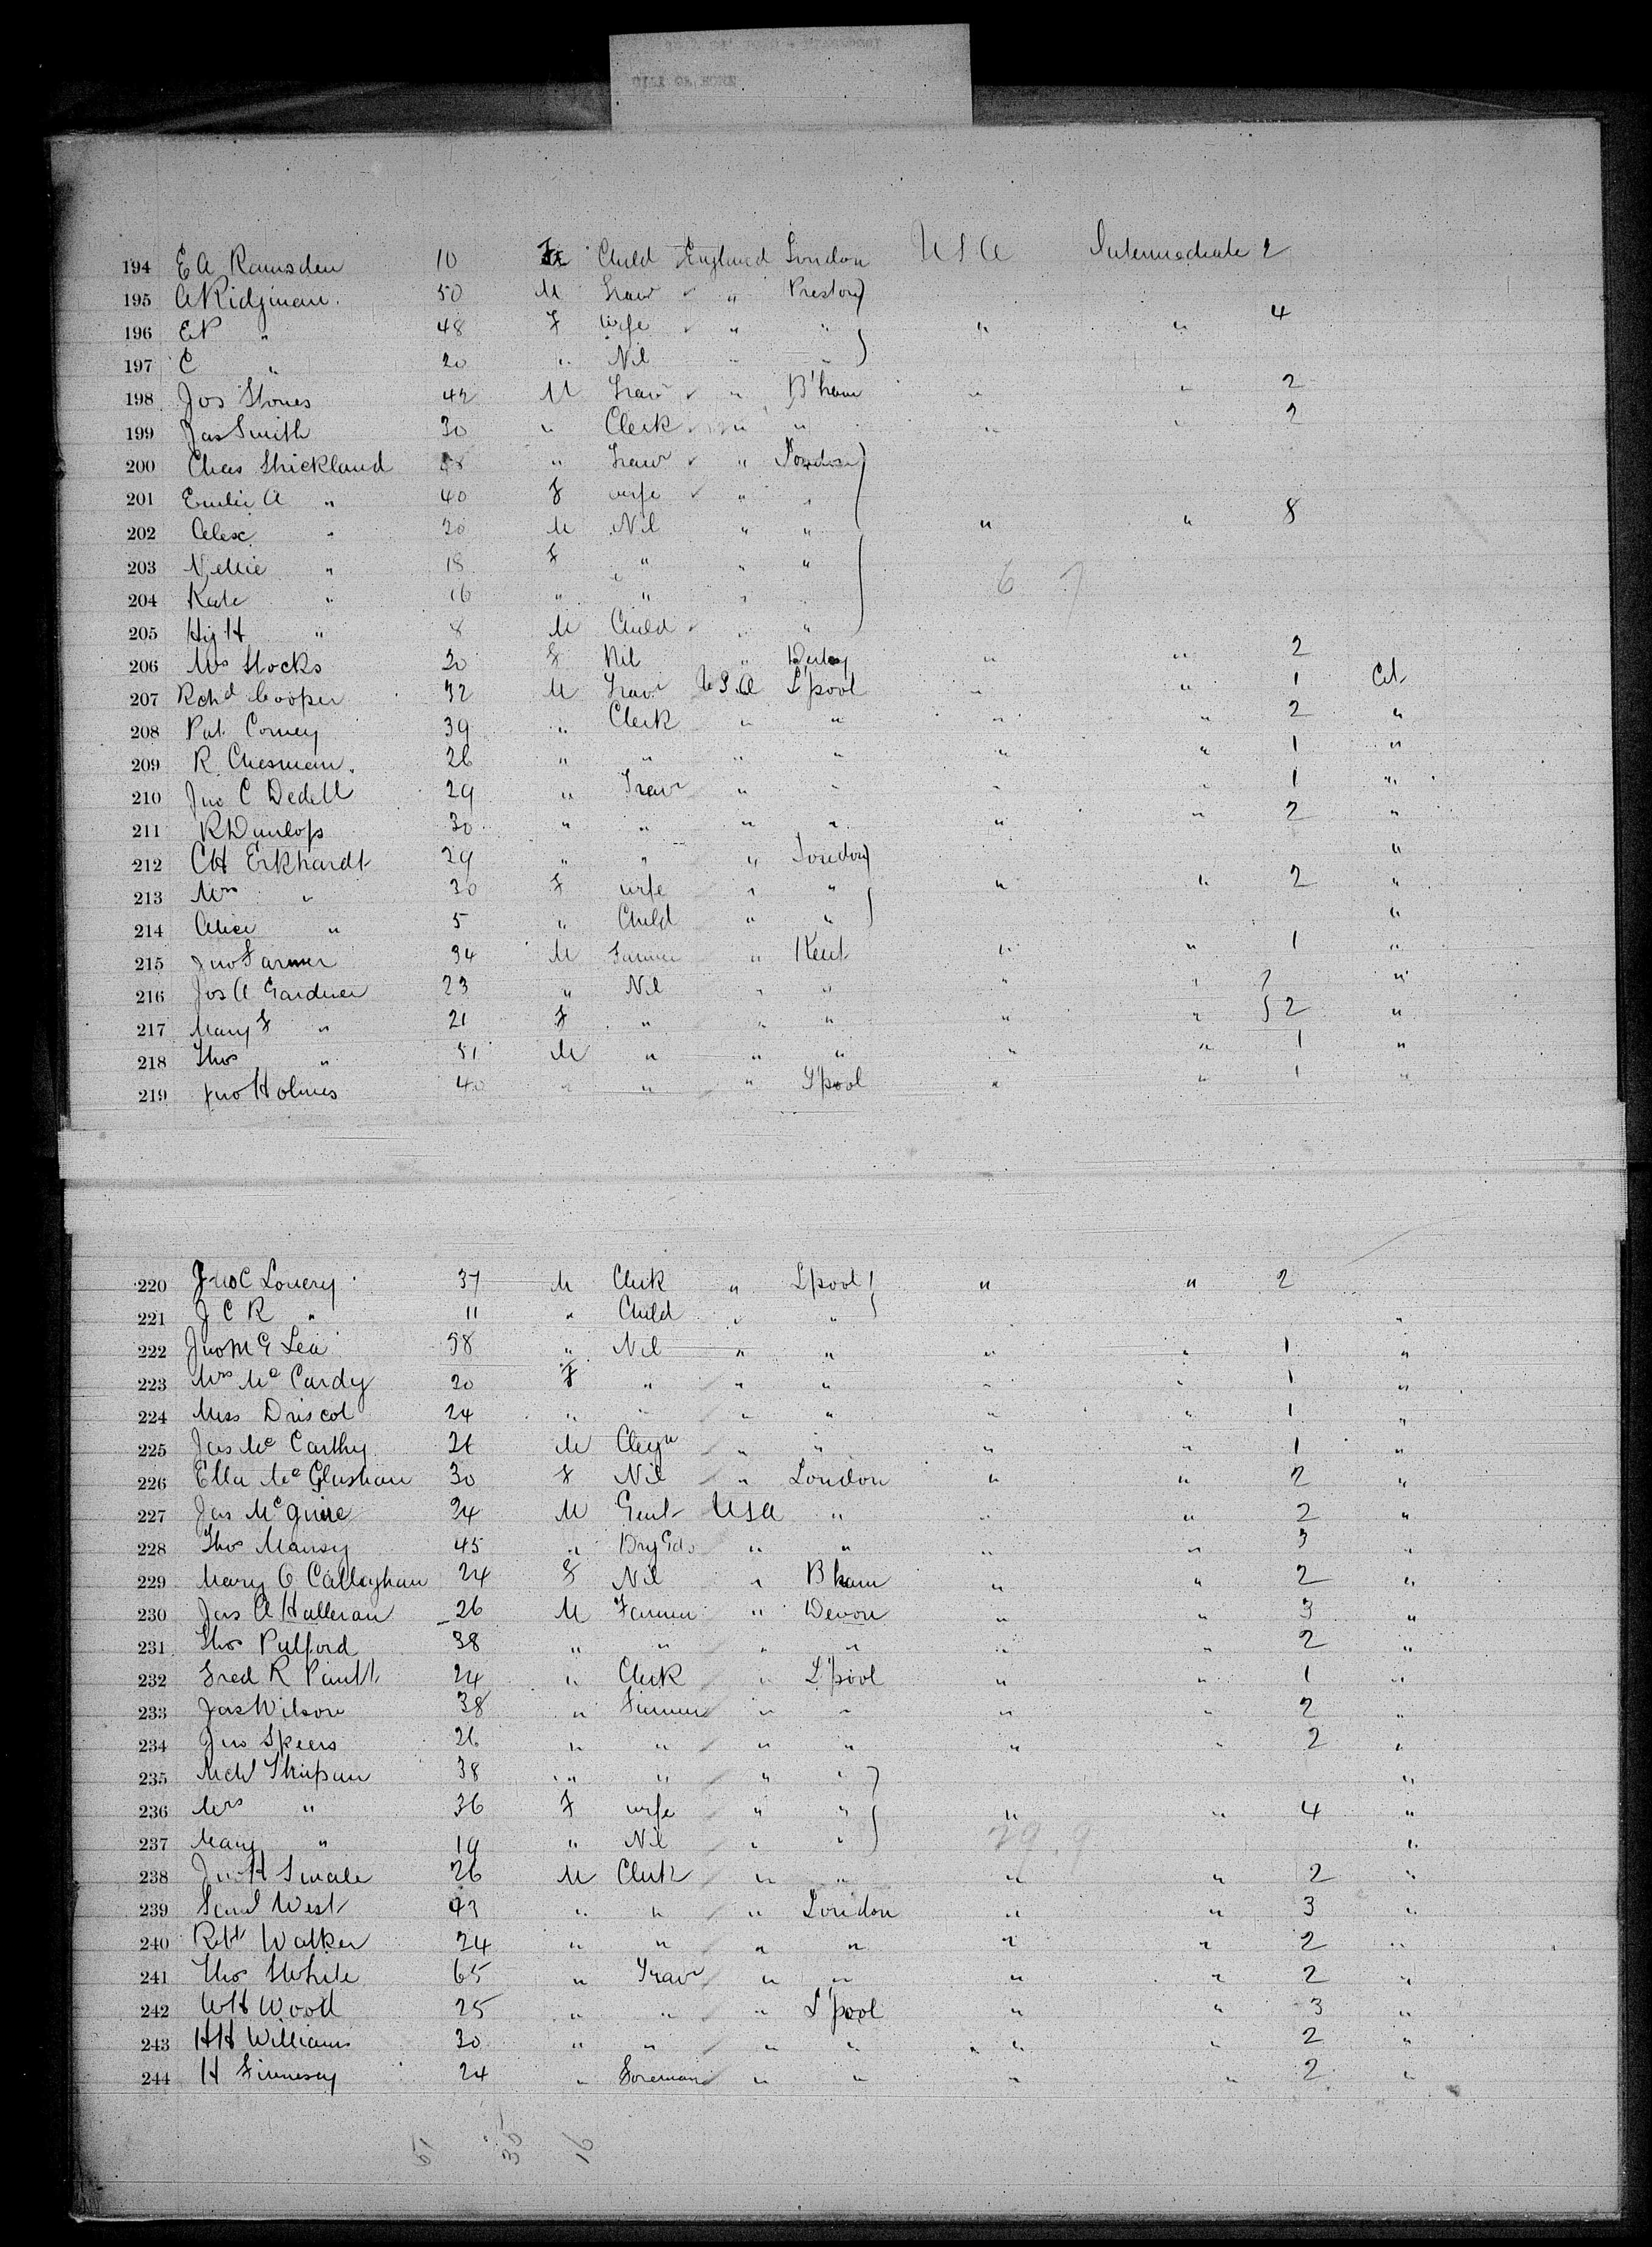 CITY OF ROME
194 E A Ramsden 10 F Child England London USA Intermediate 2
195 A Ridgman. 50 M Trav " Preston
196 EP " 48 F wife " " " " 4
197 C " 20 " Nil " "
198 Jos Stones 42 M Trav " B'ham " " 2
199 Jas Smith 30 " Clerk " " " " 2
200 Chas Strickland 48 " Trav " London
201 Emilie A " 40 F wife " "
202 Alex " 20 M Nil " " " " 8
203 Nellie " 18 F " " "
204 Kate " 16 " " " " 6 7
205 Hy H " 8 M Child " "
206 Mrs Stocks 20 F Nil " Derby " " 2
207 Rchd Cooper 32 M Trav USA L'pool " " 1 Cit
208 Pat Comey 39 " Clerk " " " " 2 "
209 R. Chesman. 26 " " " " " " 1 "
210 Jno C Dedell 29 " Trav " " " " 1 "
211 R Dunlop 30 " " " " " " 2 "
212 CH Erkhardt 29 " " " London "
213 Mrs " 30 F wife " " " " 2 "
214 Alice " 5 " Child " " "
215 Jno Farmer 34 M Farmer " Kent " " 1 "
216 Jos A Gardner 23 " Nil " " " " "
217 Mary F " 21 F " " " " " 2 "
218 Thos " 51 M " " " " " 1 "
219 Jno Holmes 40 " " " L'pool " " 1 "
220 Jno C Lowery 37 M Clerk " Lpool " " 2
221 J C R " 11 " Child " " "
222 Jno McG Lea 58 " Nil " " " " 1 "
223 Mrs Mc Cardy 20 F " " " " " 1 "
224 Miss Driscol 24 " " " " " " 1 "
225 Jas Mc Carthy 26 M Clegn " " " " 1 "
226 Ella Mc Glushan 30 F Nil " London " " 2 "
227 Jas McGuire 24 M Gent USA " " " 2 "
228 Thos Mansy 45 " Dry Gds " " " " 3 "
229 Mary O Callaghan 24 F Nil " B'ham " " 2 "
230 Jas A Halleran 26 M Farmer " Devon " " 3 "
231 Thos Pulford 38 " " " " " " 2 "
232 Fred R 24 " Clerk " L'pool " " 1 "
233 Jas Wilson 38 " Farmer " " " " 2 "
234 Jno Speers 26 " " " " " " 2 "
235 38 " " " " "
236 Mrs " 36 F wife " " " " 4 "
237 Mary " 19 " Nil " " 29. 9 "
238 Jno H Smale 26 M Clerk " " " " 2 "
239 Saml West 43 " " " London " " 3 "
240 Robt Walker 24 " " " " " " 2 "
241 Thos White 65 " Trav " " " " 2 "
242 WH Wood 25 " " " L'pool " " 3 "
243 HH Williams 30 " " " " " " 2 "
244 H Finnesey 24 " Foreman " " " " 2 "
35 16